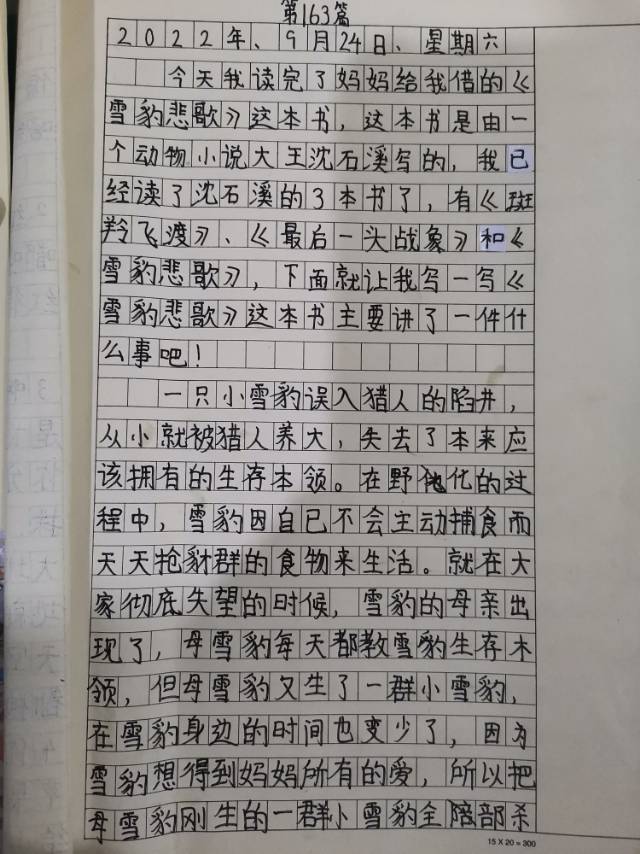 第163篇
2022年、9月24日、星期六
今天我读完了妈妈给我借的《
雪豹悲歌》这本书，这本书是由一
个动物小说大王沈石溪写的，我已
经读了沈石溪的3本书了，有《斑
羚飞渡》、《最后一头战象》和《
雪豹悲歌》，下面就让我写一写《
雪豹悲歌》这本书主要讲了一件什
么事吧！
一只小雪豹误入猎人的陷井，
从小就被猎人养大，失去了本来应
该拥有的生存本领。在野化的过
程中，雪豹因自己不会主动捕食而
天天抢豺群的食物来生活。就在大
家彻底失望的时候，雪豹的母亲出
现了，母雪豹每天都教雪豹生存本
领，但母雪豹又生了一群小雪豹，
在雪豹身边的时间也变少了，因为
雪豹想得到妈妈所有的爱，所以把
母雪豹刚生的一群小雪豹全部杀
15 X 20 = 300